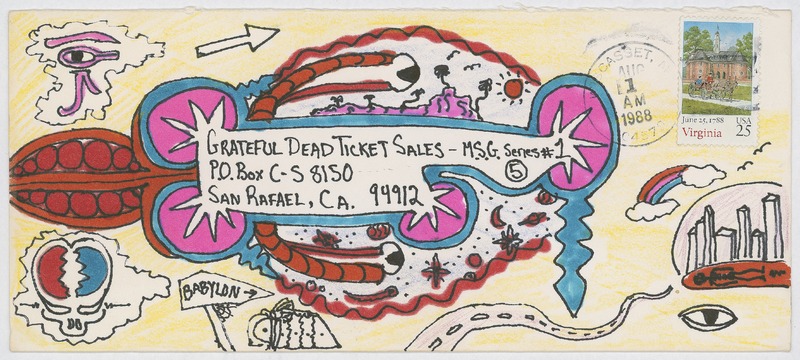 GRATEFUL DEAD TICKET SALES - M.S.G. Series #1
P.O. Box C-S 8150
⑤
SAN RAFAEL, CA. 94912
BABYLON
AUG
1
AM
1988
June 25, 1788 USA
Virginia 25